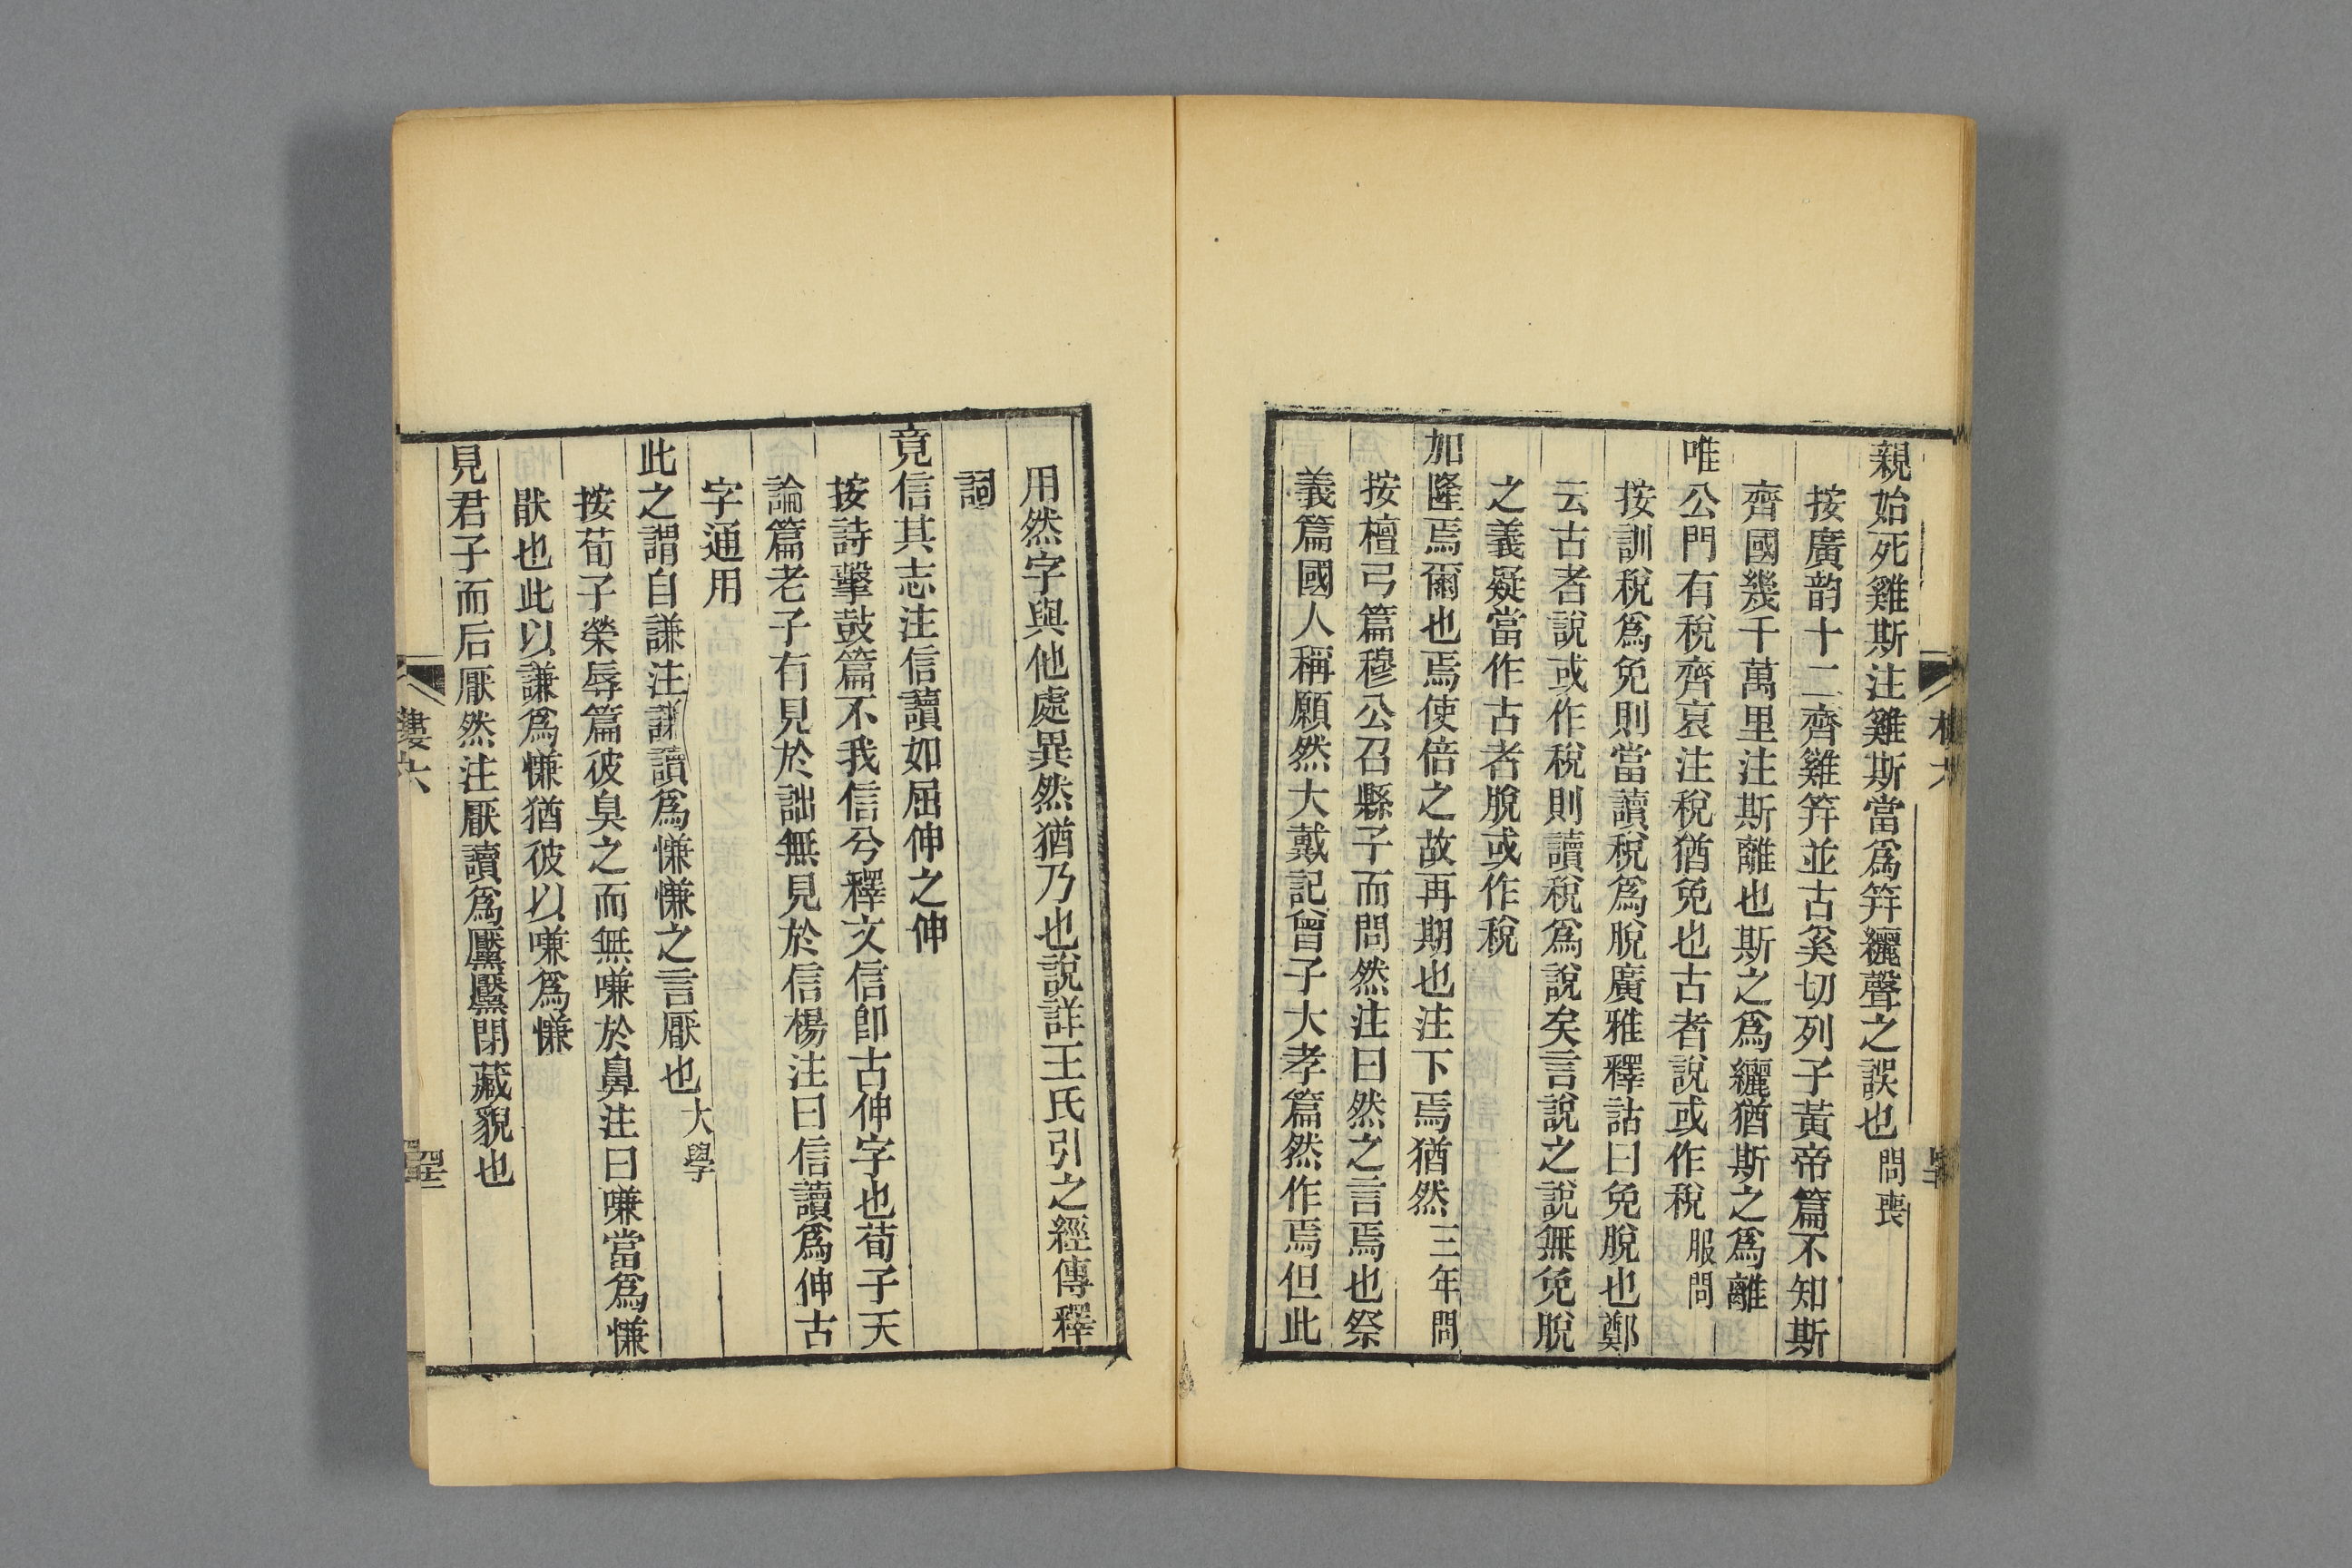 親始死雞斯注雞斯當爲笄纚聲之誤也問喪
按廣韵十二齊雞笄並古奚切列子黃帝篇不知斯
齊國幾千萬里注斯離也斯之爲纚猶斯之爲離
唯公門有稅齊衰注稅猶免也古者說或作稅服問
按訓稅爲免則當讀稅爲脫廣雅釋詁曰免脫也鄭
云古者說或作稅則讀稅爲說矣言說之說無免脫
之義疑當作古者脫或作稅
加隆焉爾也焉使倍之故再期也注下焉猶然三年問
按檀弓篇穆公召縣子而問然注曰然之言焉也祭
義篇國人稱願然大戴記曾子大孝篇然作焉但此
用然字與他處異然猶乃也說詳王氏引之經傳釋
詞
竟信其志注信讀如屈伸之伸
按詩擊鼓篇不我信兮釋文信卽古伸字也荀子天
論篇老子有見於詘無見於信楊注曰信讀爲伸古
字通用
此之謂自謙注謙讀爲慊慊之言厭也大學
按荀子榮辱篇彼臭之而無嗛於鼻注曰嗛當爲慊
猒也此以謙爲慊猶彼以嗛爲慊
見君子而后厭然注厭讀爲黶黶閉藏貌也